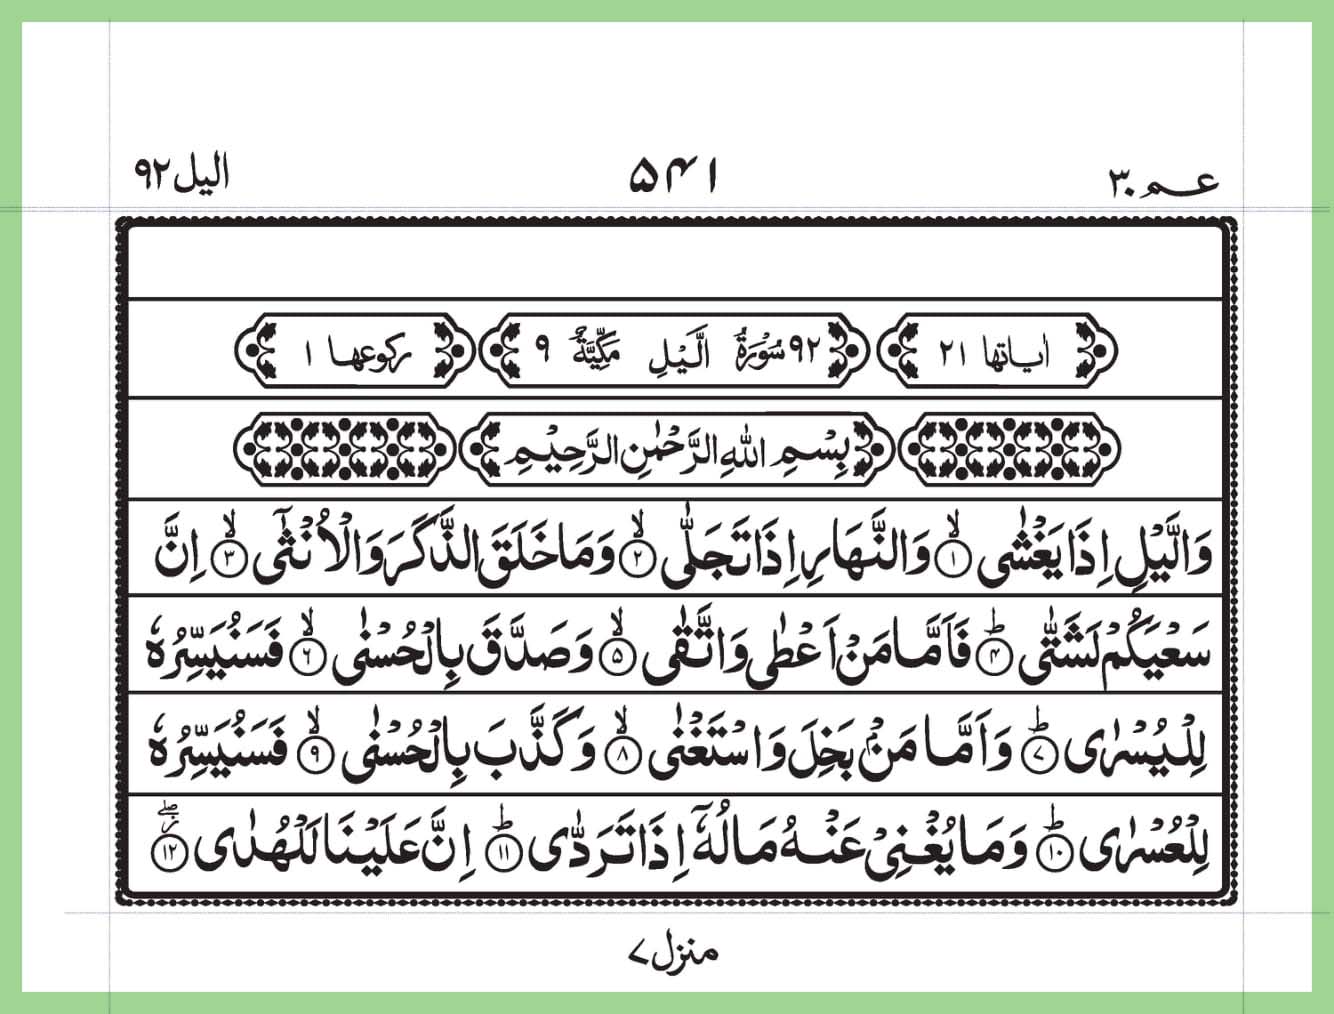 عم ٣٠ ۵۴۱ اليل ٩٢
اٰياتها ٢١ ٩٢ سُوْرَةُ الَّيْلِ مَكِّيَّةٌ ٩ ركوعها ١
بِسْمِ اللّٰهِ الرَّحْمٰنِ الرَّحِيْمِ
وَالَّيْلِ اِذَا يَغْشٰى ۙ‏﴿۱﴾ وَالنَّهَارِ اِذَا تَجَلّٰى ۙ‏﴿۲﴾ وَمَا خَلَقَ الذَّكَرَ وَالْاُنْثٰٓى ۙ‏﴿۳﴾ اِنَّ
سَعْيَكُمْ لَشَتّٰى ؕ‏﴿۴﴾ فَاَمَّا مَنْ اَعْطٰى وَاتَّقٰى ۙ‏﴿۵﴾ وَصَدَّقَ بِالْحُسْنٰى ۙ‏﴿۶﴾ فَسَنُيَسِّرُهٗ
لِلْيُسْرٰى ؕ‏﴿۷﴾ وَاَمَّا مَنْۢ بَخِلَ وَاسْتَغْنٰى ۙ‏﴿۸﴾ وَكَذَّبَ بِالْحُسْنٰى ۙ‏﴿۹﴾ فَسَنُيَسِّرُهٗ
لِلْعُسْرٰى ؕ‏﴿۱۰﴾ وَمَا يُغْنِىْ عَنْهُ مَالُهٗۤ اِذَا تَرَدّٰى ؕ‏﴿۱۱﴾ اِنَّ عَلَيْنَا لَلْهُدٰى ۖ‏﴿۱۲﴾
منزل ٧